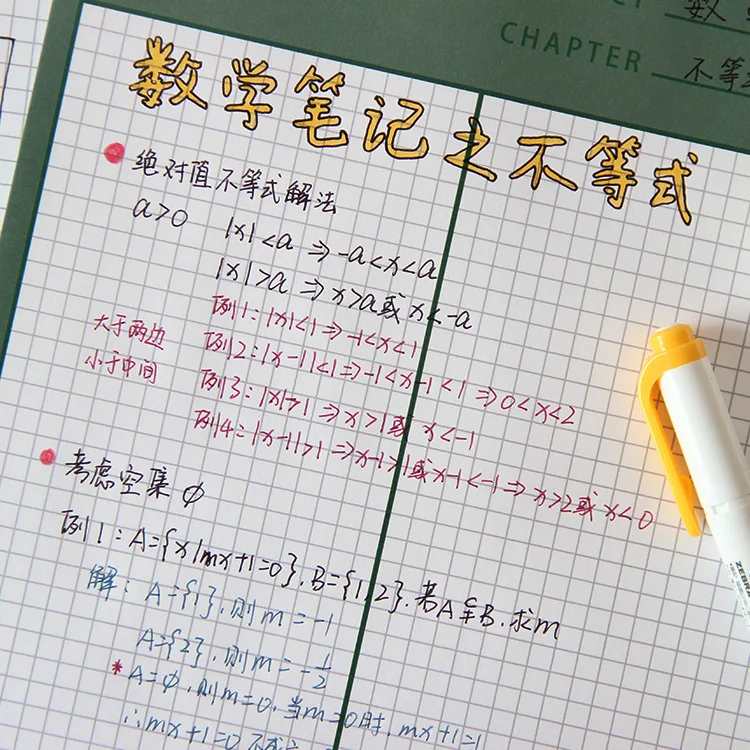 CHAPTER
数学笔记之不等式
绝对值不等式解法
a>0 |x|<a ⇒ -a<x<a
|x|>a ⇒ x>a或x<-a
例1:|x|<1 ⇒ -1<x<1
大于两边
小于中间
例2:|x-1|<1 ⇒ -1<x-1<1 ⇒ 0<x<2
例3:|x|>1 ⇒ x>1或 x<-1
例4:|x-1|>1 ⇒ x-1>1或x-1<-1 ⇒ x>2或x<0
考虑空集 φ
例1:A={x|mx+1=0}.B={1,2}.若A⊊B.求m
解:A={1},则m=-1
A={2},则m=-1/2
*A=φ,则m=0,当m=0时,mx+1=1
∴mx+1=0
ZEBRA